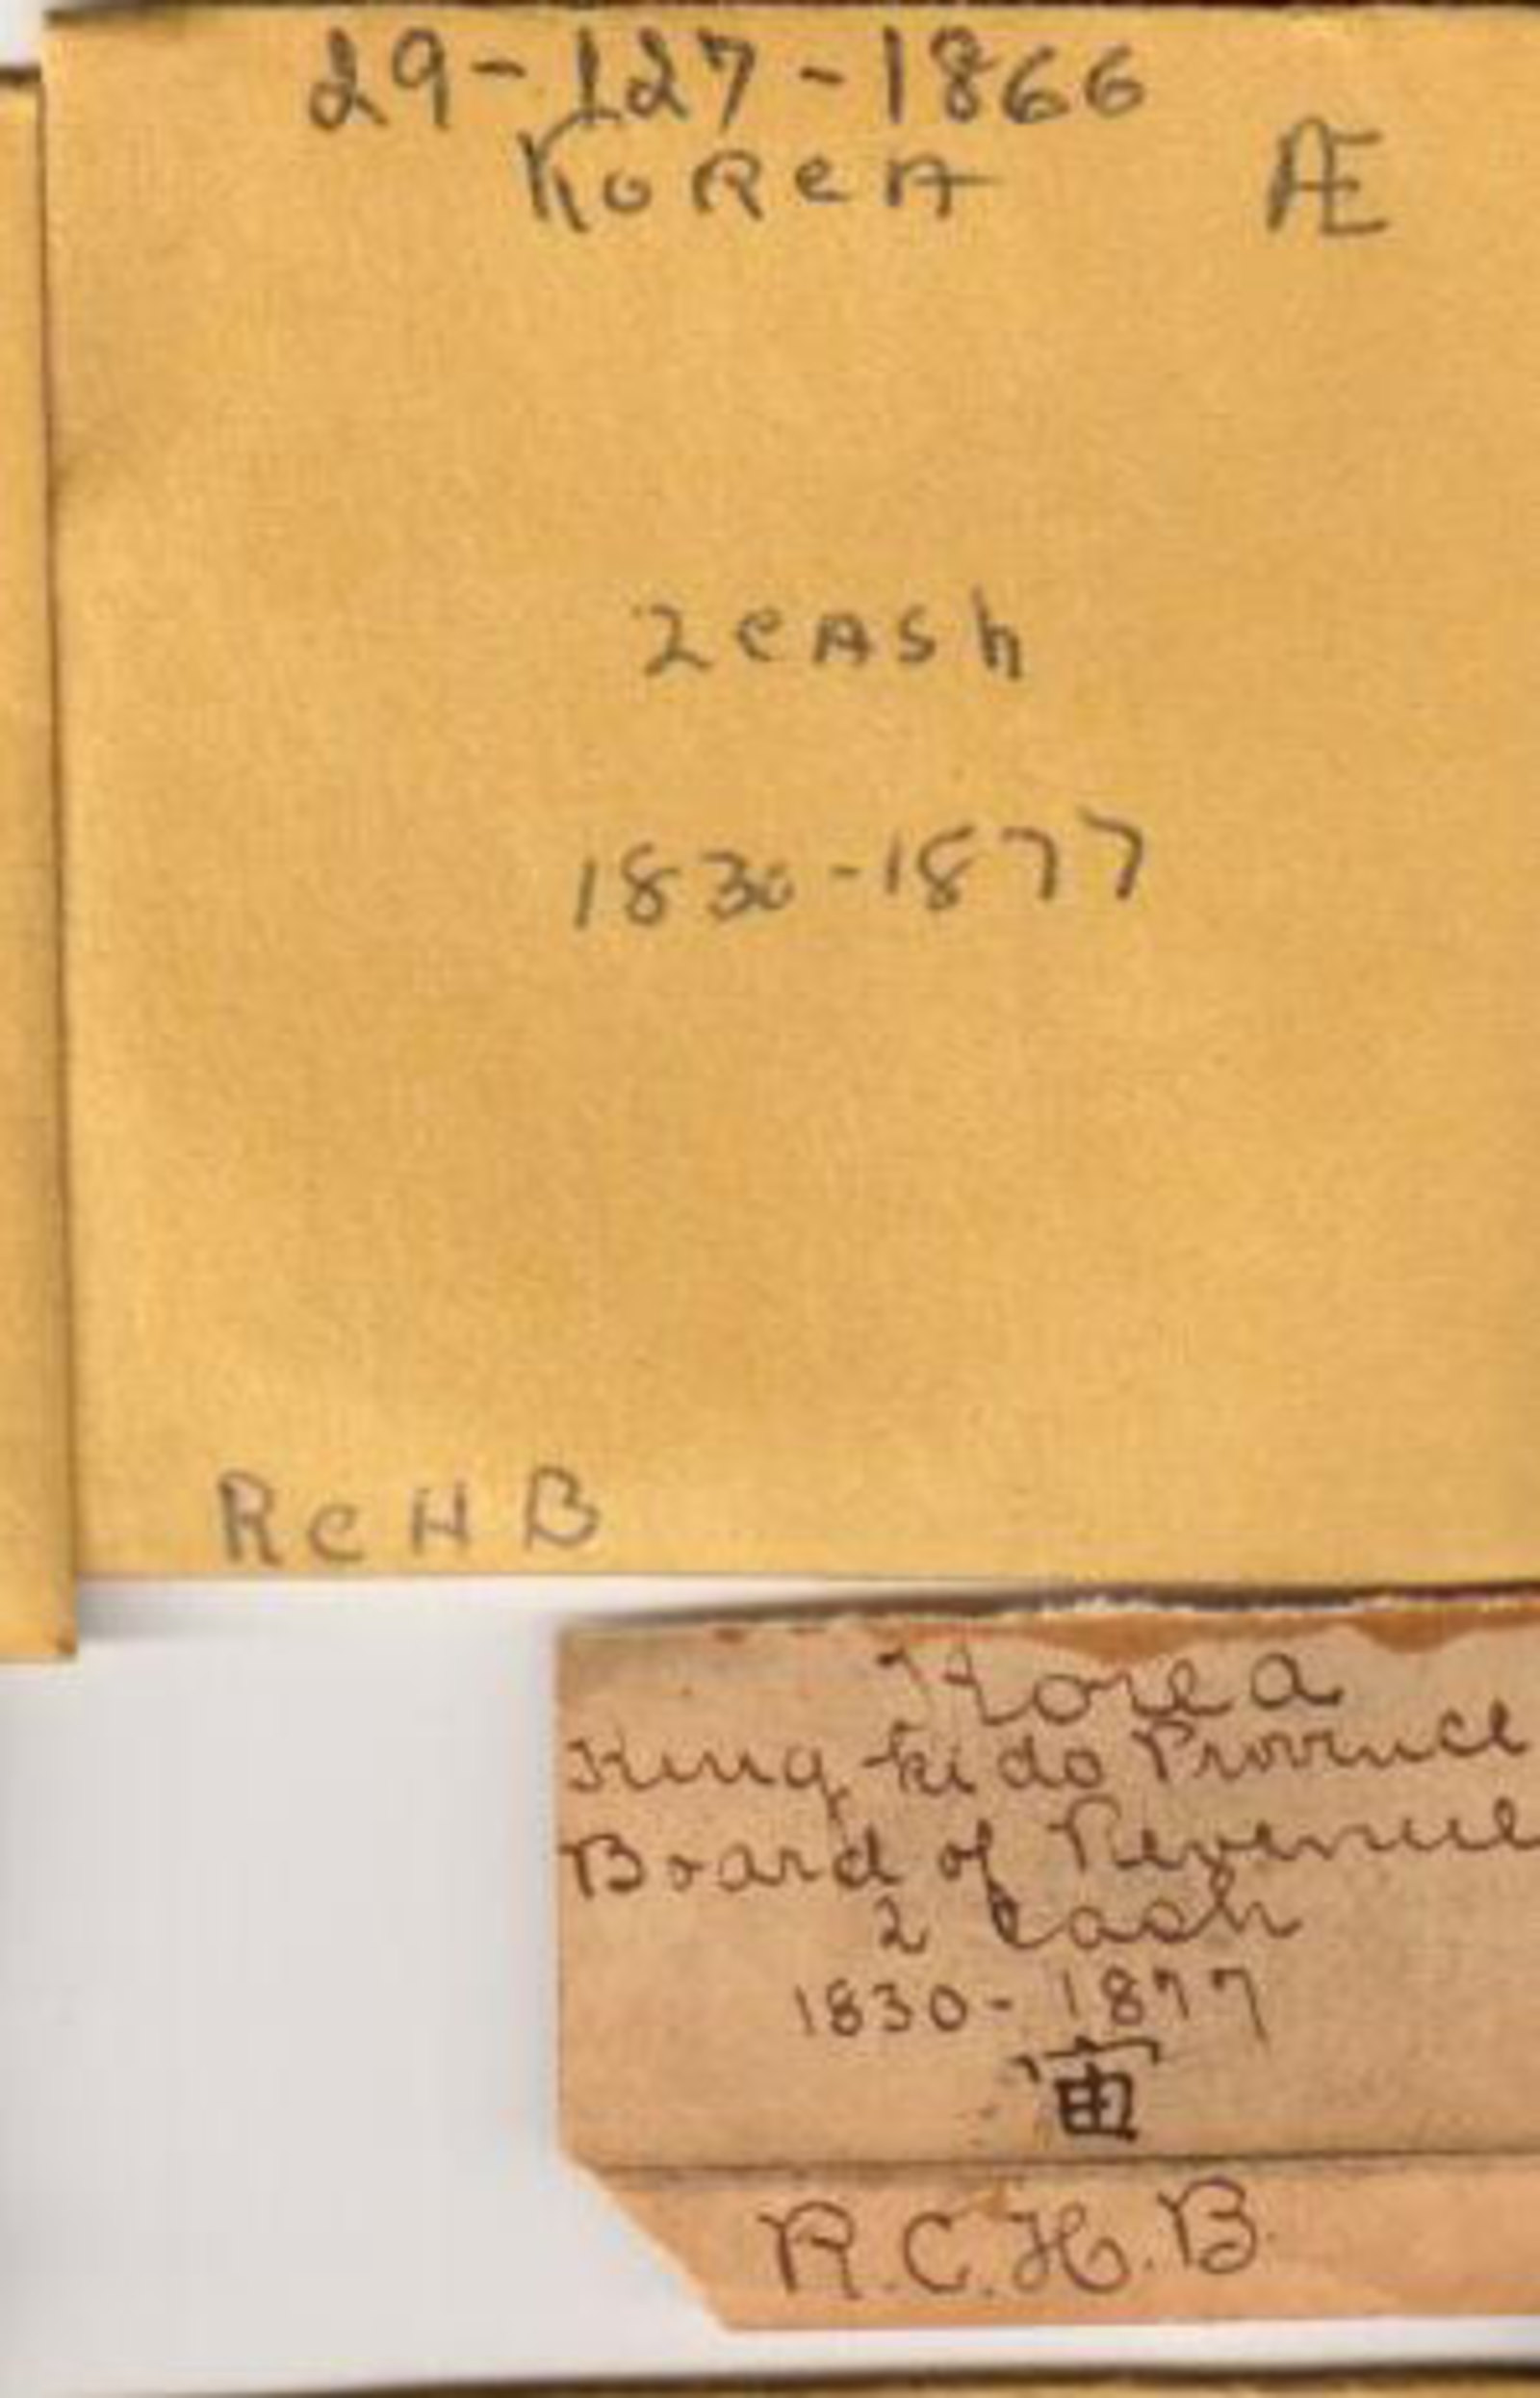 29-127-1866
KOReA Æ
2 CASh
1830-1877
RCHB
Korea
King ki do Province
Board of Revenue
2 Cash
1830-1877
宙
R.C.H.B.